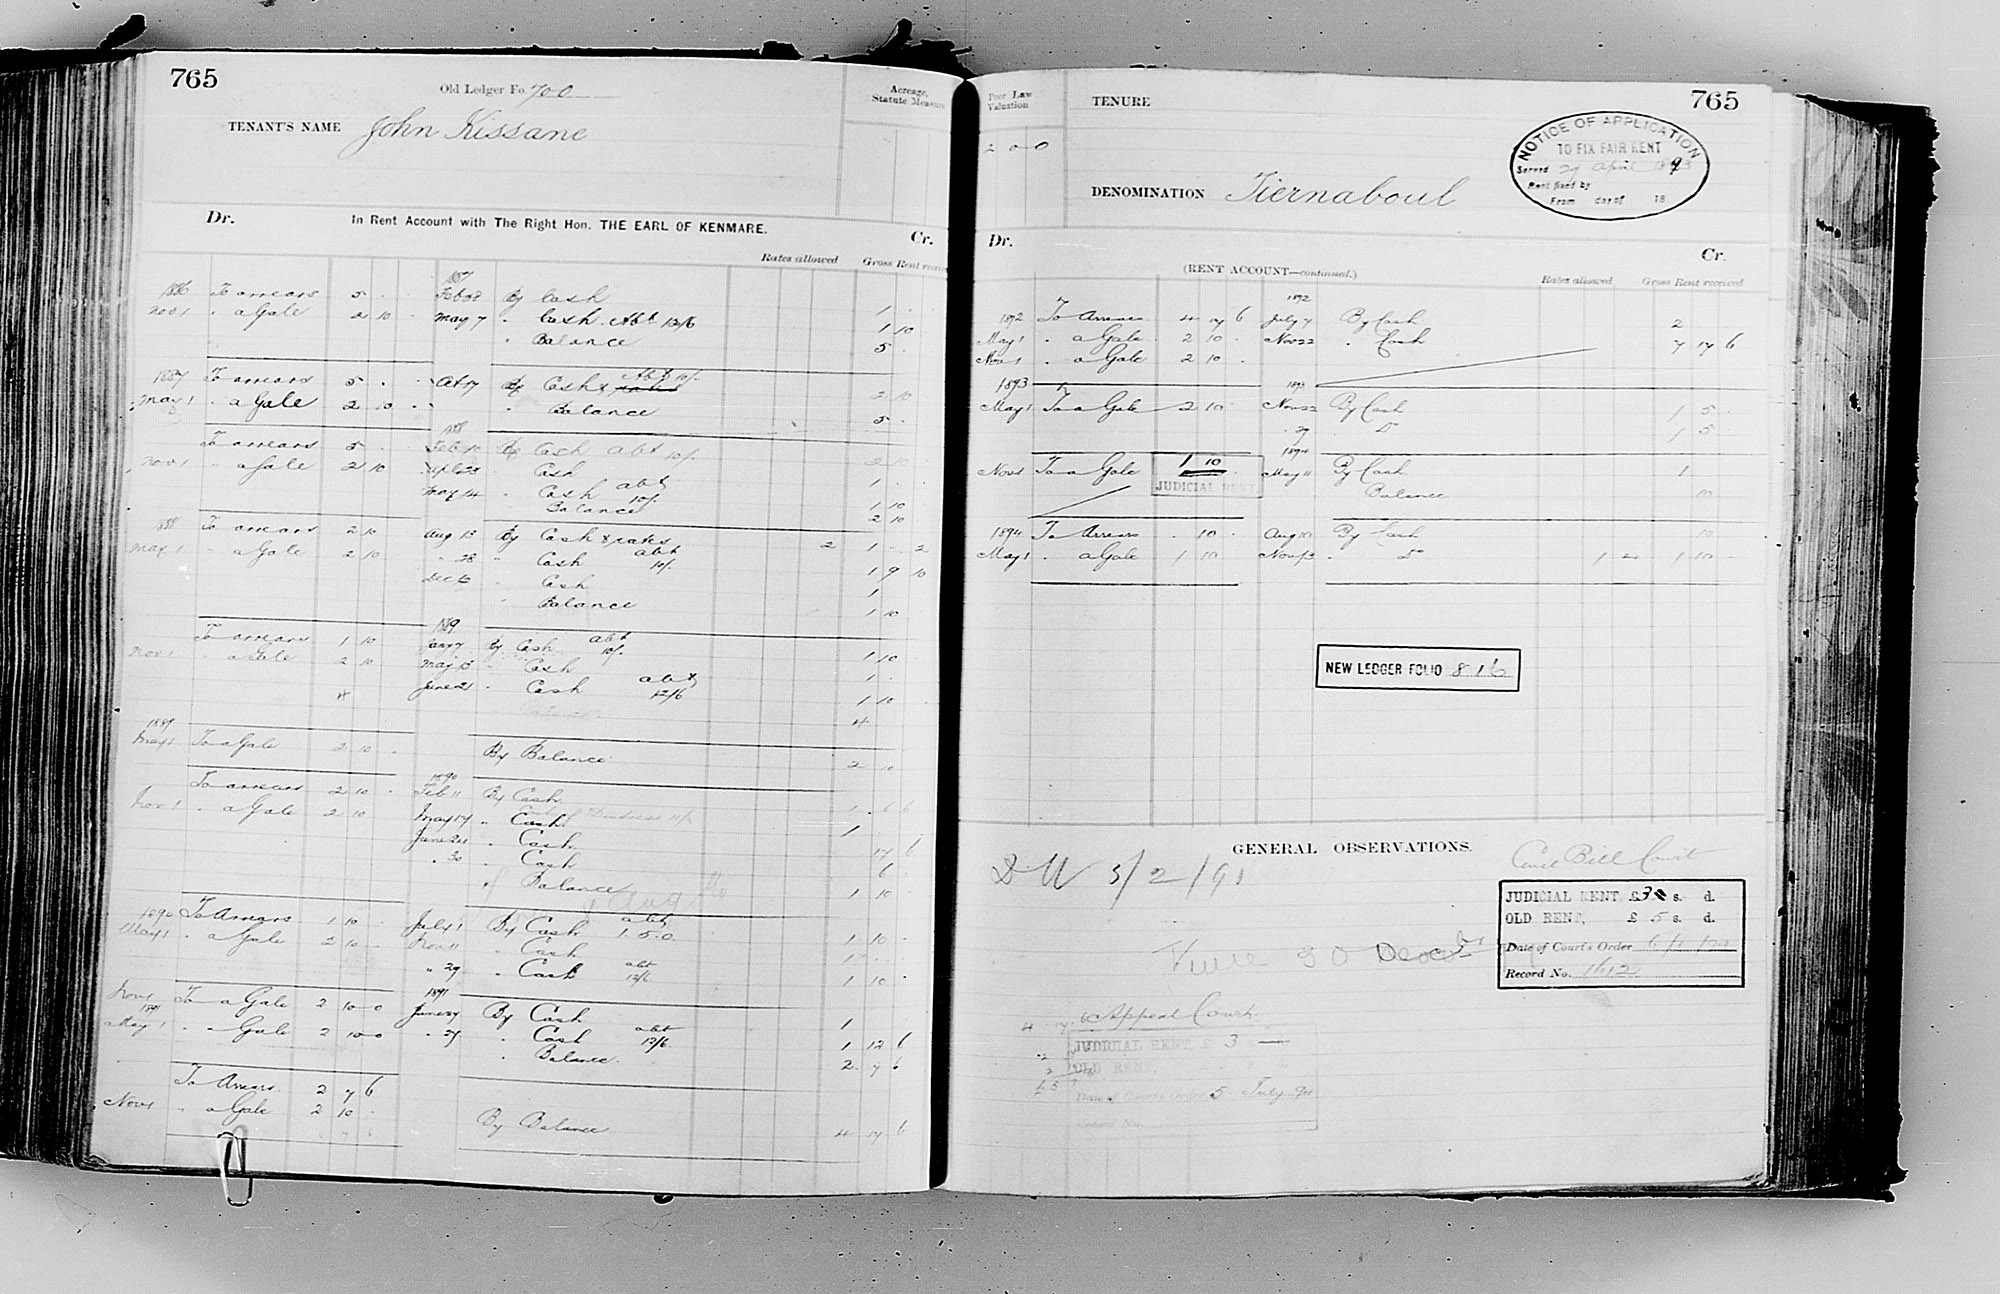 765
Old Ledger Fo. 700
Acreage, Statute Measure
TENANT'S NAME John Kissane
Dr. In Rent Account with The Right Hon. THE EARL OF KENMARE. Cr.
Rates allowed Gross Rent received
1886 To arrears 5 . . 1887 Feb 08 By Cash 1 .
Nov 1 " a Gale 2 10 . May 7 " Cash Abt 12/6 1 10
" Balance 5 .
1887 To arrears 5 . . Oct 17 By Cash & rates Abt 10/. 2 10
May 1 " a Gale 2 10 . " Balance 5 .
To arrears 5 . 1888 Feb 10 By Cash abt 10/. 2 10
Nov 1 " a Gale 2 10 " Cash 1 .
May 14 " Cash abt 10/. 1 10
Balance 2 10
1888 To arrears 2 10 Aug 13 By Cash & rates 2 1 . 2
May 1 " a Gale 2 10 " 28 " Cash abt 10/. 1 9 10
Dec 13 " Cash 1
" Balance 1 10
To arrears 1 10 1889 Jany 7 By Cash abt 10/. 1 10
Nov 1 " a Gale 2 10 May 13 " Cash 1 .
4 June 21 " Cash abt 12/6 1 10
Balance 4
1889
May 1 To a Gale 2 10 . By Balance 2 10
To arrears 2 10 . 1890 Feb 11 By Cash 1 . 6 6
Nov 1 " a Gale 2 10 May 17 " Cash 1
June 24 " Cash 17 6
" 30 " Cash 6
" Balance 1 10
1890 To Arrears 1 10 . July 1 By Cash abt 1.5.0. 1 10 .
May 1 " a Gale 2 10 Nov 11 " Cash 1 .
" 29 " Cash abt 12/6 1 10 .
Nov 1 To a Gale 2 10 0 1891 June 27 By Cash 1
1891 May 1 " " Gale 2 10 0 " 27 " Cash abt 12/6 1 12 6
" Balance 2 7 6
To Arrears 2 7 6
Nov 1 " a Gale 2 10 . By Balance 4 17 6
Poor Law Valuation
2 0 0
TENURE
765
NOTICE OF APPLICATION
TO FIX FAIR RENT
Served 29 April 1893
Rent fixed by
From day of 18
DENOMINATION Tiernaboul
Dr. (RENT ACCOUNT—continued.) Cr.
Rates allowed Gross Rent received
1892
1892 To Arrears 4 17 6 July 7 By Cash 2
May 1 " a Gale 2 10 . Nov 22 " Cash 7 17 6
Nov 1 " a Gale 2 10 .
1893 1893
May 1 To a Gale 2 10 Nov 22 By Cash 1 5
" 29 Do 1 5
1894
Nov 1 To a Gale 1 10 May 11 By Cash 1
JUDICIAL RENT Balance 10
1894 To Arrears . 10 . Aug 10 By Cash 10
May 1 " a Gale 1 10 Nov 13 " Do 1 4 1 10
NEW LEDGER FOLIO 816
GENERAL OBSERVATIONS.
5/2/91
Civil Bill Court
JUDICIAL RENT, £3 s. d.
OLD RENT, £ 5 s. d.
Date of Court's Order
Record No. 1612
Appeal Court.
JUDICIAL RENT £ 3 —
OLD RENT,
Date of Court's Order 5 July 94
Record No.